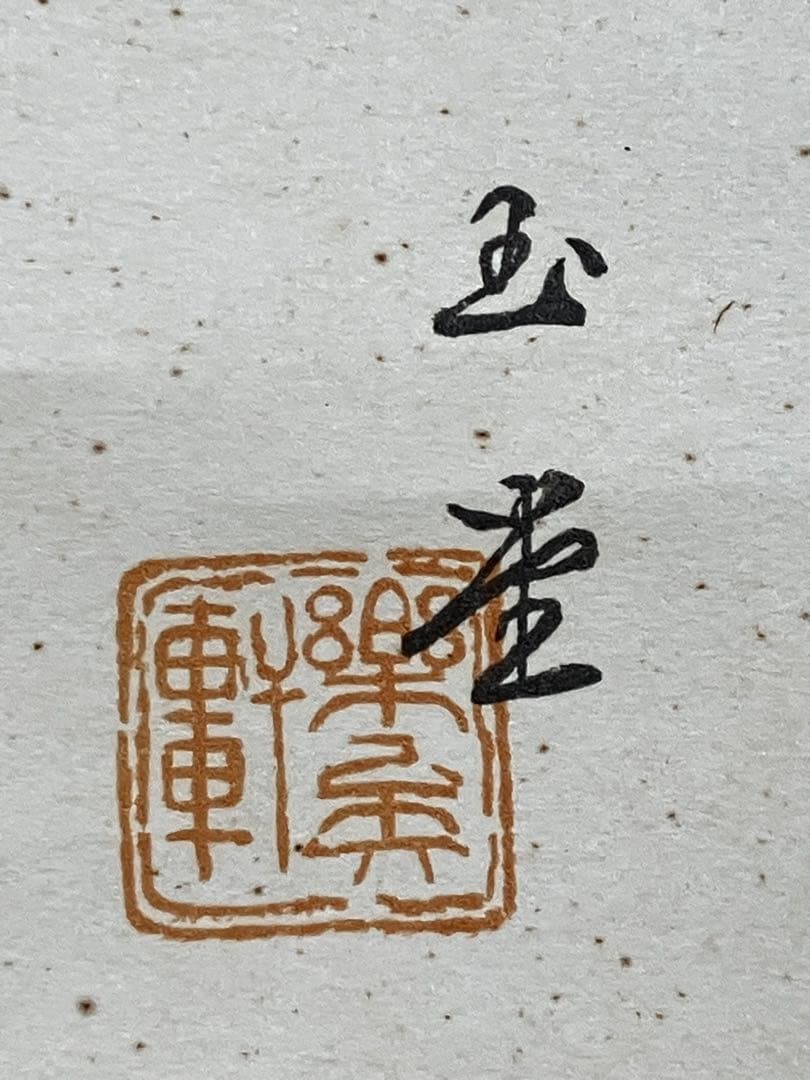 玉堂
樂
軒